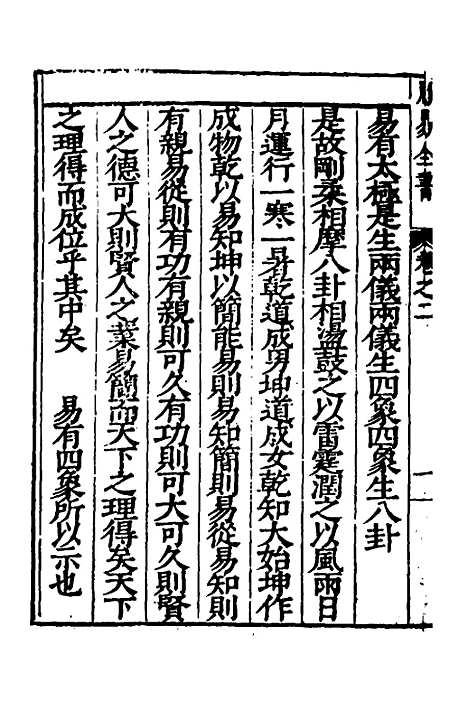 易有太極是生兩儀兩儀生四象四象生八卦
是故剛柔相摩八卦相盪鼓之以雷霆潤之以風雨日
月運行一寒一暑乾道成男坤道成女乾知大始坤作
成物乾以易知坤以簡能易則易知簡則易從易知則
有親易從則有功有親則可久有功則可大可久則賢
人之德可大則賢人之業易簡而天下之理得矣天下
之理得而成位乎其中矣　易有四象所以示也